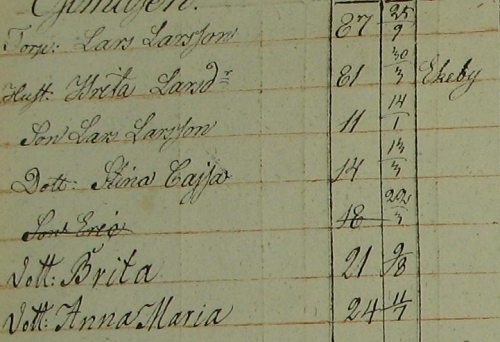 Torp: Lars Larsson 87 25/9
Hust: Greta Larsdr 81 30/3 Ekeby
Son Lars Larsson 11 14/1
Dott: Stina Cajsa 14 13/3
Son Eric 18 22/3
Dott: Brita 21 9/8
Dott: Anna Maria 24 11/7